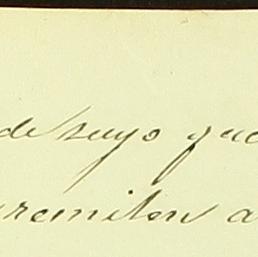 de suyo que
remiten a